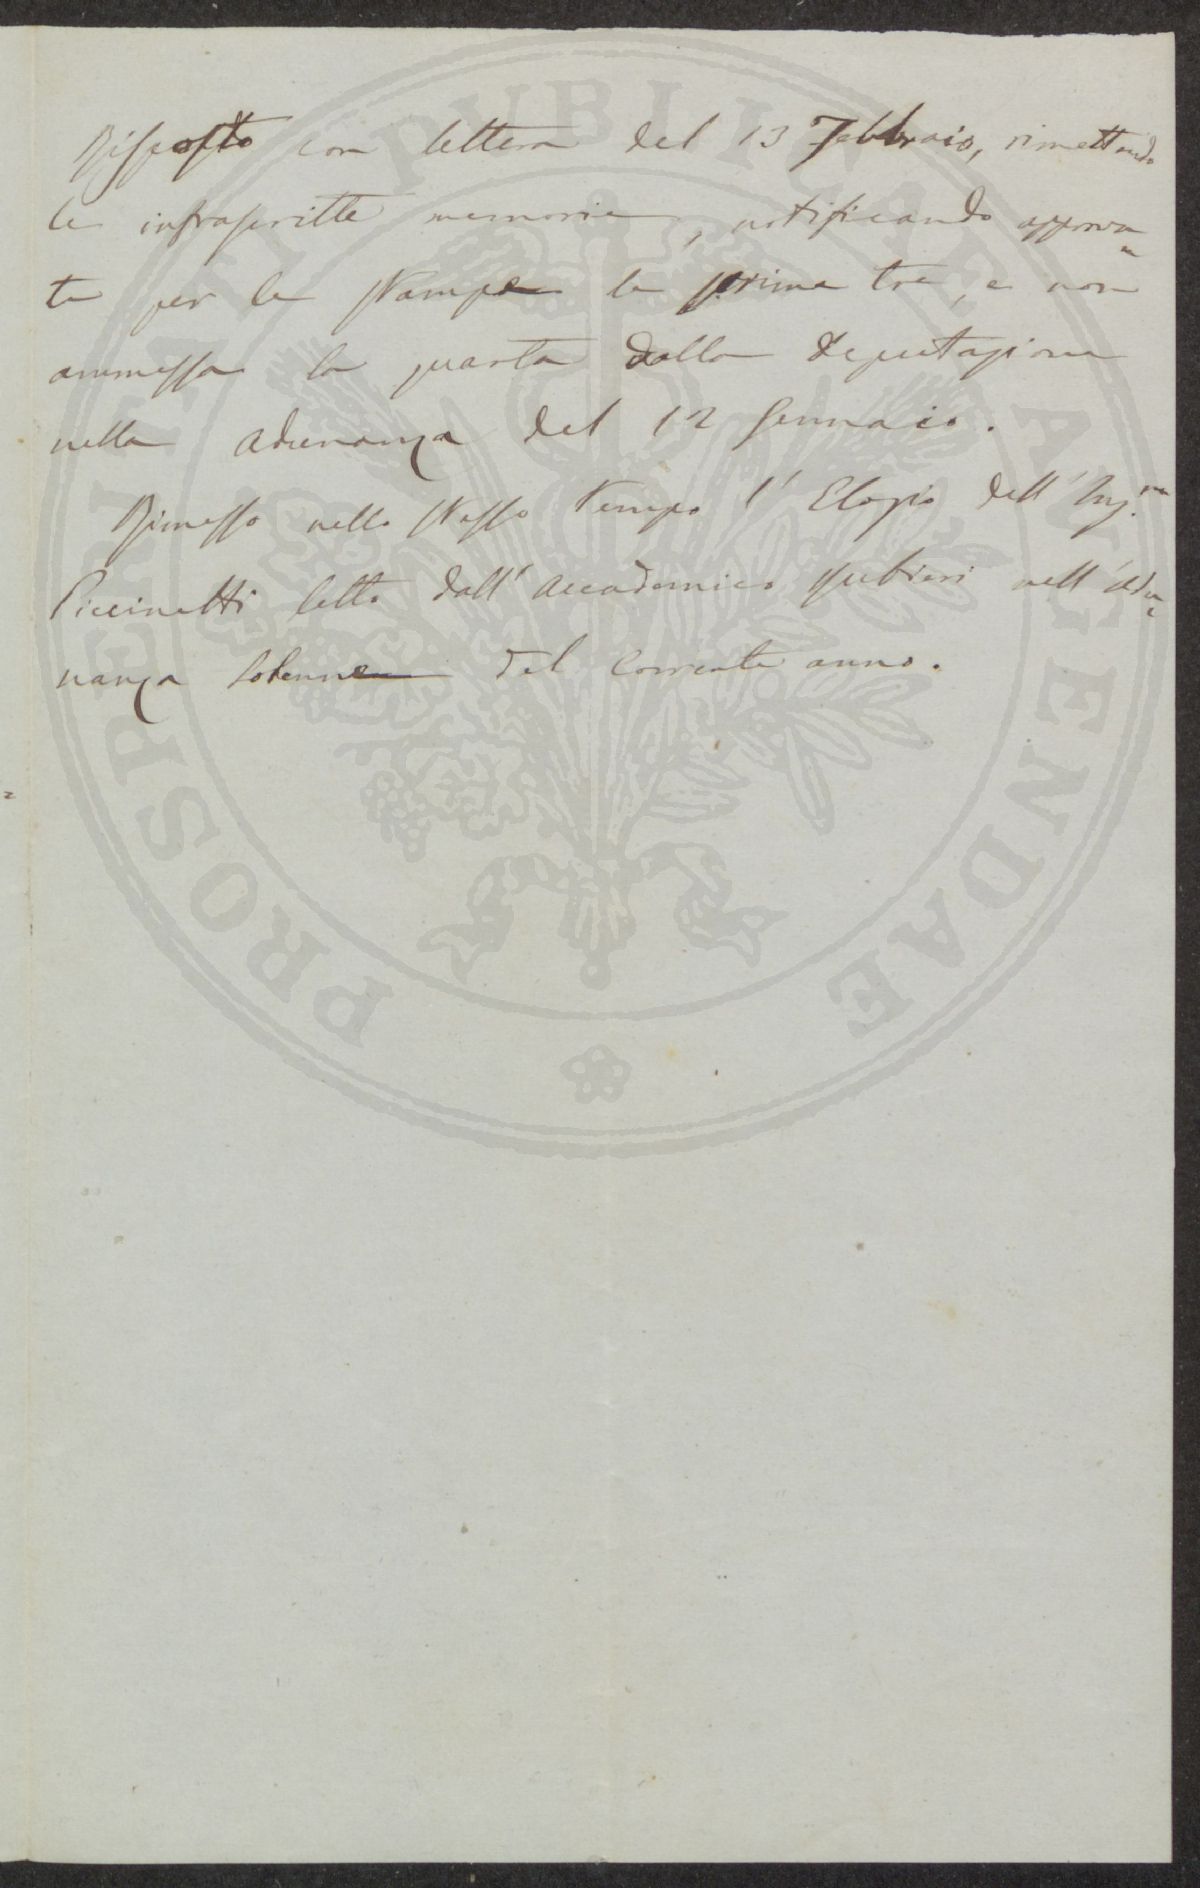 Risposto con lettera del 13 Febbraio, rimettendo
le infrascritte memorie, notificando approva=
te per la stampa le prime tre, e non
ammessa la quarta dalla Deputazione
nella adunanza del 12 Gennaio.
Rimesso nello stesso tempo l'Elogio dell'Ing.re
Piccinetti letto dall'Accademico nell'Adu=
nanza solenne del corrente anno.
PROSPERITATI PVBLICAE AVGENDAE